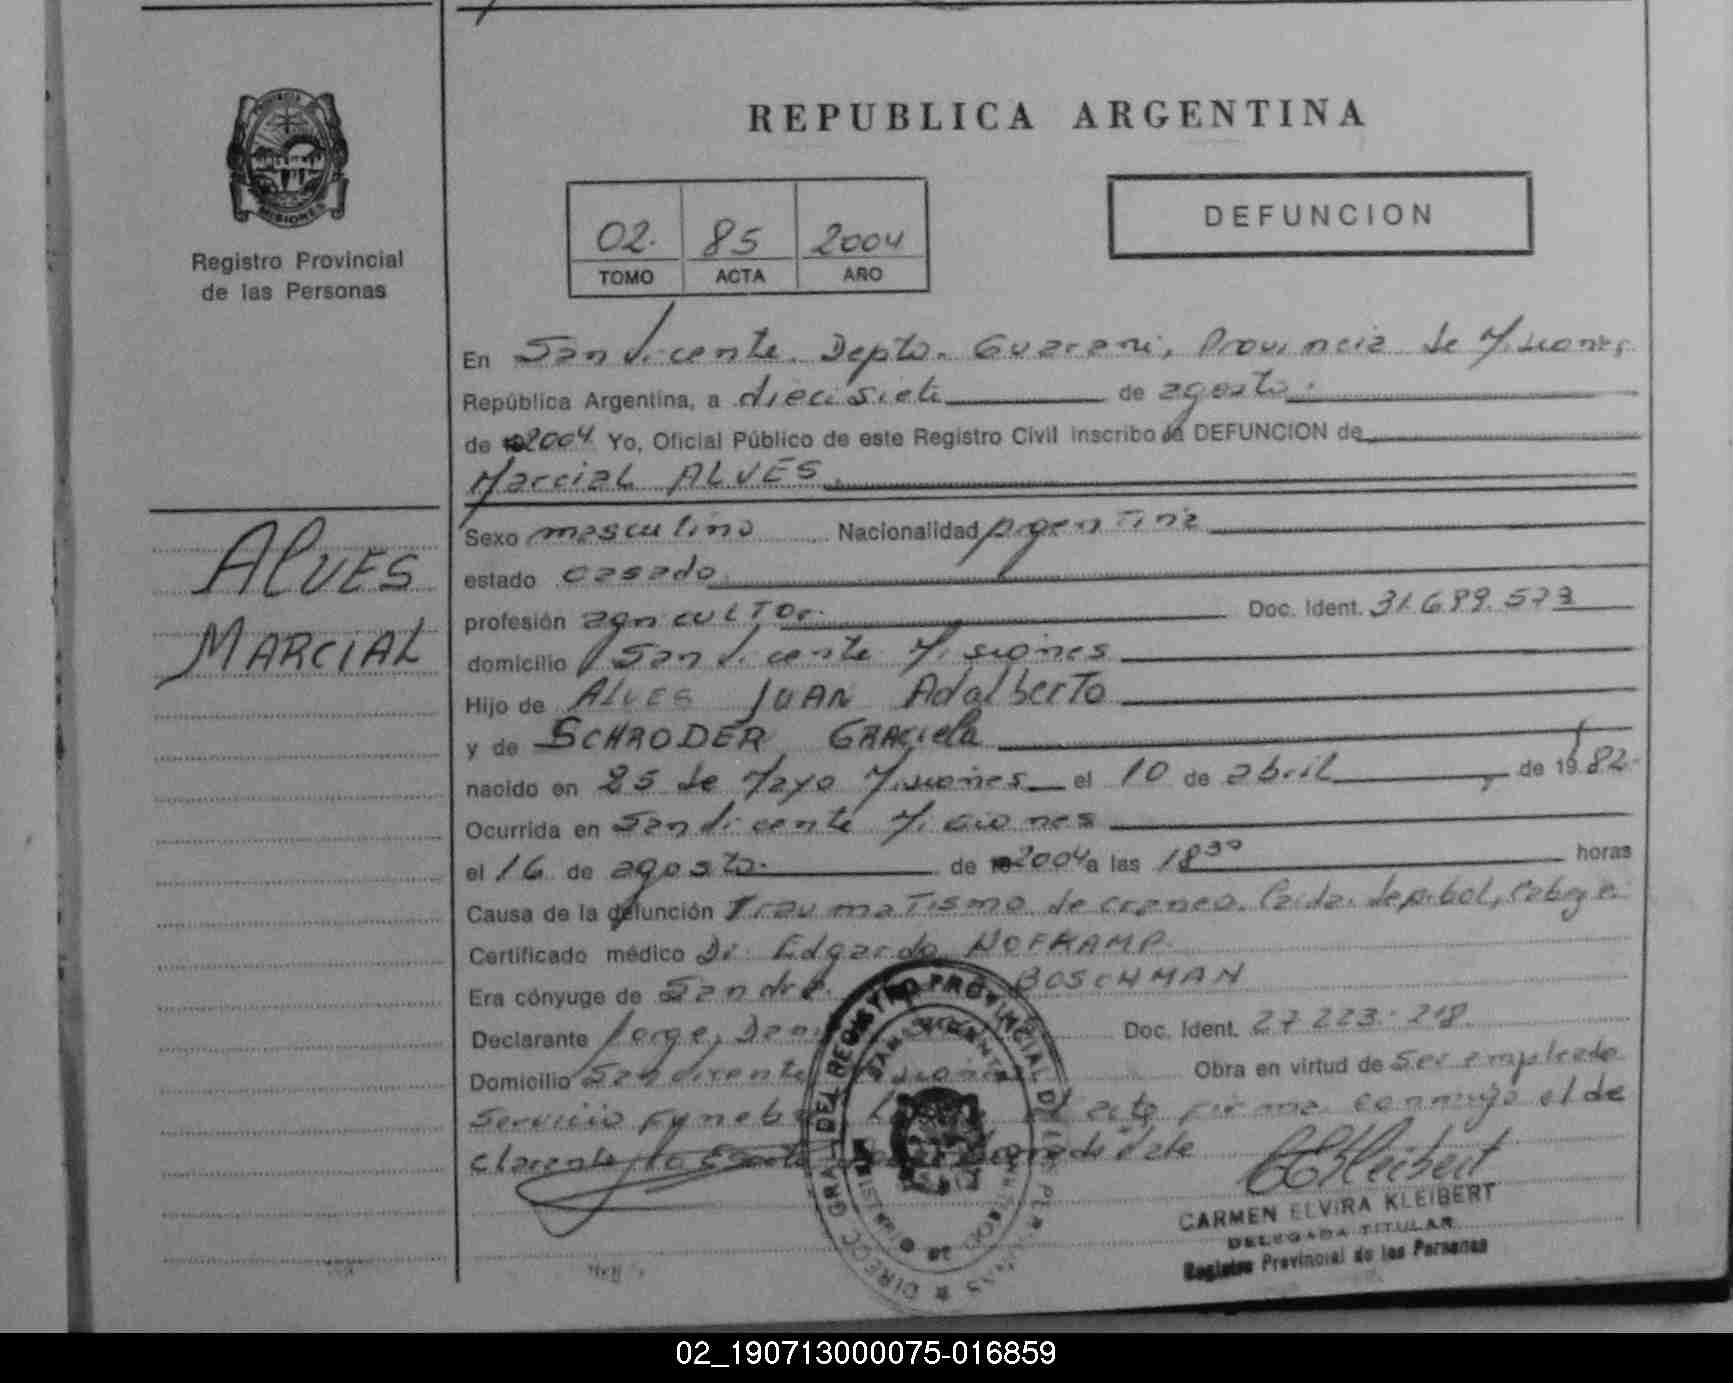 PROVINCIA
MISIONES
Registro Provincial
de las Personas
ALVES
MARCIAL
REPUBLICA ARGENTINA
02. 85 2004
TOMO ACTA AÑO
DEFUNCION
En San Vicente. Depto. Guarani, Provincia de Misiones
República Argentina, a diecisiete de agosto.
de 2004 Yo, Oficial Público de este Registro Civil inscribo la DEFUNCION de
Marcial ALVES
Sexo masculino Nacionalidad Argentina
estado casado
profesión agricultor. Doc. Ident. 31.689.573
domicilio San Vicente Misiones
Hijo de ALVES JUAN Adalberto
y de SCHRODER GRACIELA
nacido en 25 de Mayo Misiones el 10 de abril de 1982.
Ocurrida en San Vicente Misiones
el 16 de agosto. de 2004 a las 18³⁰ horas
Causa de la defunción Traumatismo de craneo.
Certificado médico Dr. Edgardo HOFKAMP.
Era cónyuge de Sandra BOSCHMAN
Declarante Jorge, Doc. Ident. 27.223.218.
Domicilio San Vicente Obra en virtud de Ser empleado
Servicio acta firma conmigo el de
clarante
DEL REGISTRO PROVINCIAL DE
SAN VICENTE
CARMEN ELVIRA KLEIBERT
DELEGADA TITULAR
Registro Provincial de las Personas
02_190713000075-016859